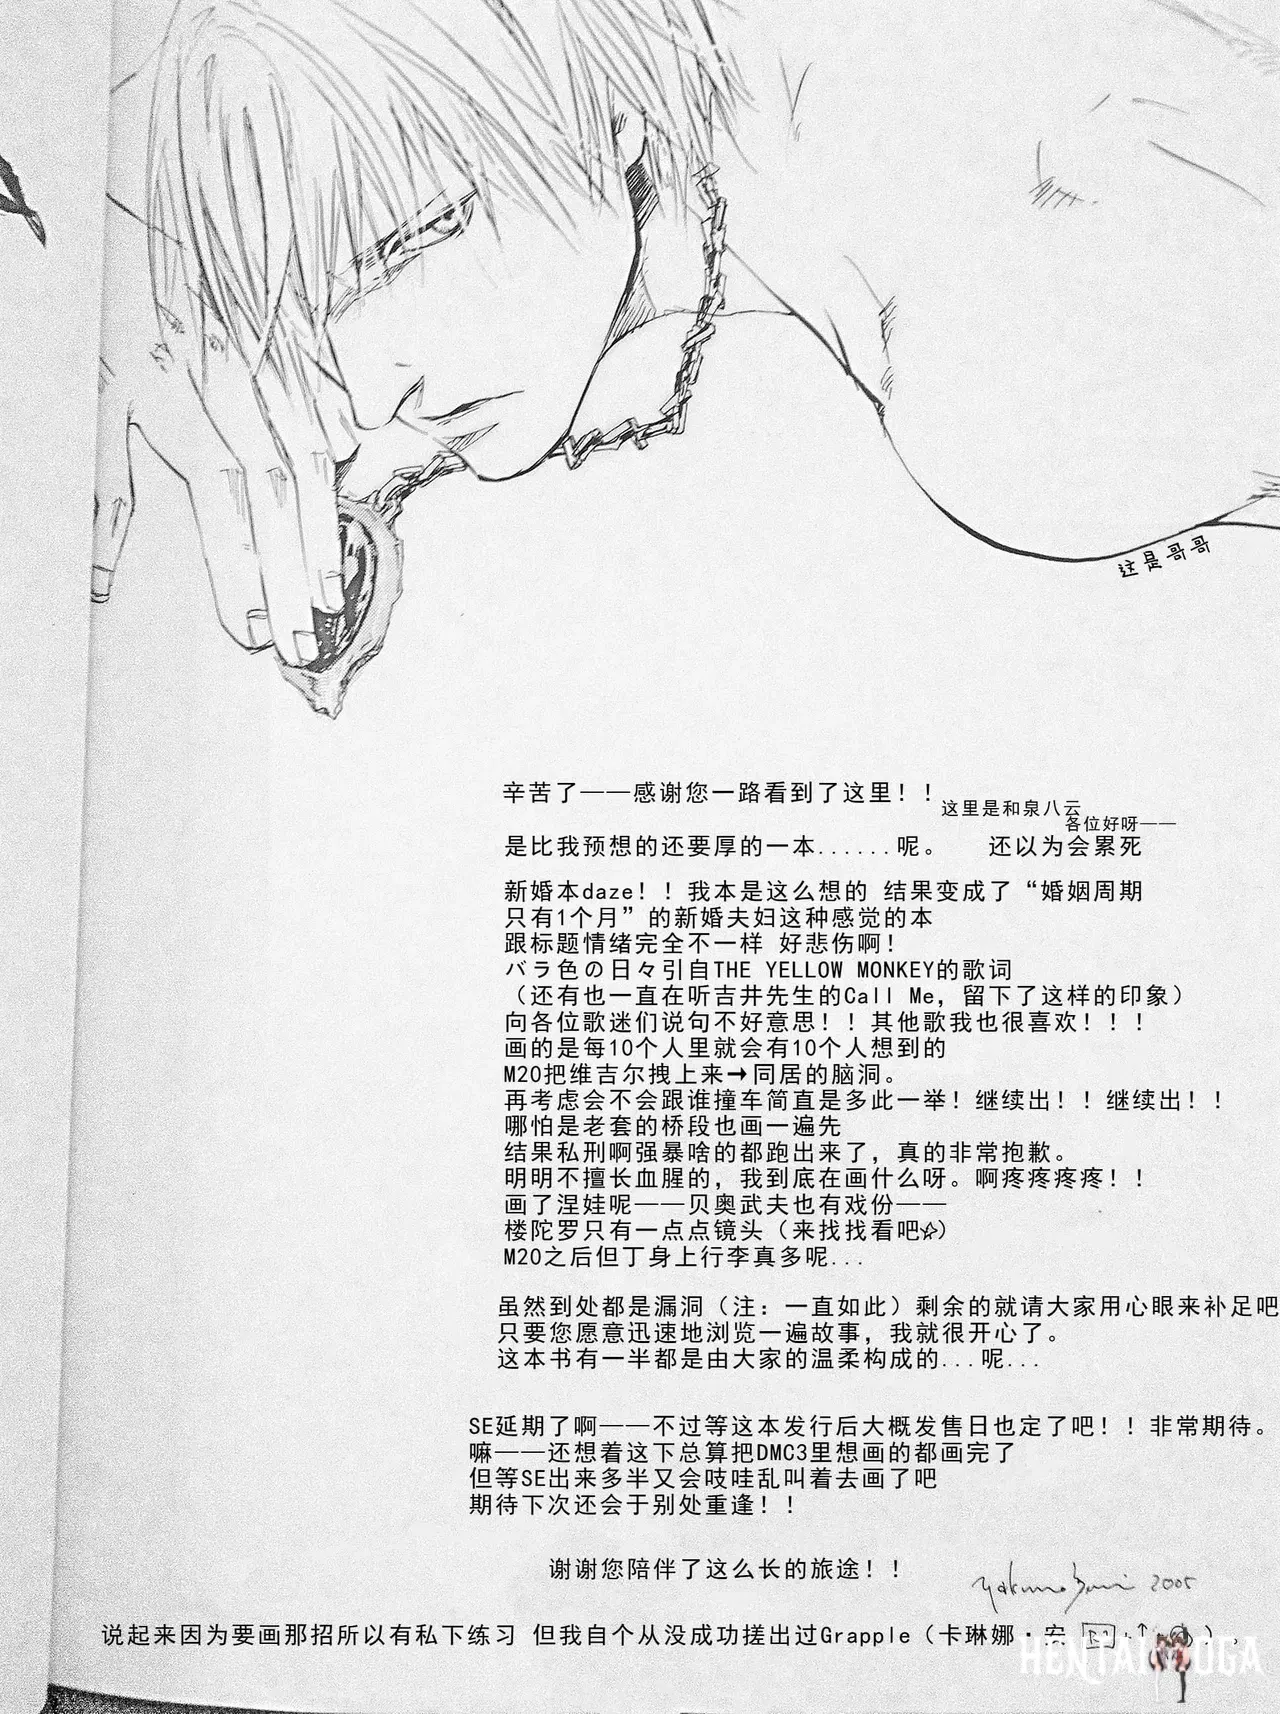 这是哥哥
辛苦了——感谢您一路看到了这里！！
这里是和泉八云
各位好呀——
是比我预想的还要厚的一本......呢。 还以为会累死
新婚本daze！！我本是这么想的 结果变成了“婚姻周期
只有1个月”的新婚夫妇这种感觉的本
跟标题情绪完全不一样 好悲伤啊！
バラ色の日々引自THE YELLOW MONKEY的歌词
（还有也一直在听吉井先生的Call Me，留下了这样的印象）
向各位歌迷们说句不好意思！！其他歌我也很喜欢！！！
画的是每10个人里就会有10个人想到的
M20把维吉尔拽上来→同居的脑洞。
再考虑会不会跟谁撞车简直是多此一举！继续出！！继续出！！
哪怕是老套的桥段也画一遍先
结果私刑啊强暴啥的都跑出来了，真的非常抱歉。
明明不擅长血腥的，我到底在画什么呀。啊疼疼疼疼！！
画了涅娃呢——贝奥武夫也有戏份——
楼陀罗只有一点点镜头（来找找看吧☆）
M20之后但丁身上行李真多呢...
虽然到处都是漏洞（注：一直如此）剩余的就请大家用心眼来补足吧
只要您愿意迅速地浏览一遍故事，我就很开心了。
这本书有一半都是由大家的温柔构成的...呢...
SE延期了啊——不过等这本发行后大概发售日也定了吧！！非常期待。
嘛——还想着这下总算把DMC3里想画的都画完了
但等SE出来多半又会吱哇乱叫着去画了吧
期待下次还会于别处重逢！！
谢谢您陪伴了这么长的旅途！！
2005
说起来因为要画那招所以有私下练习 但我自个从没成功搓出过Grapple（卡琳娜·安 ↑）。
HENTAI YOGA